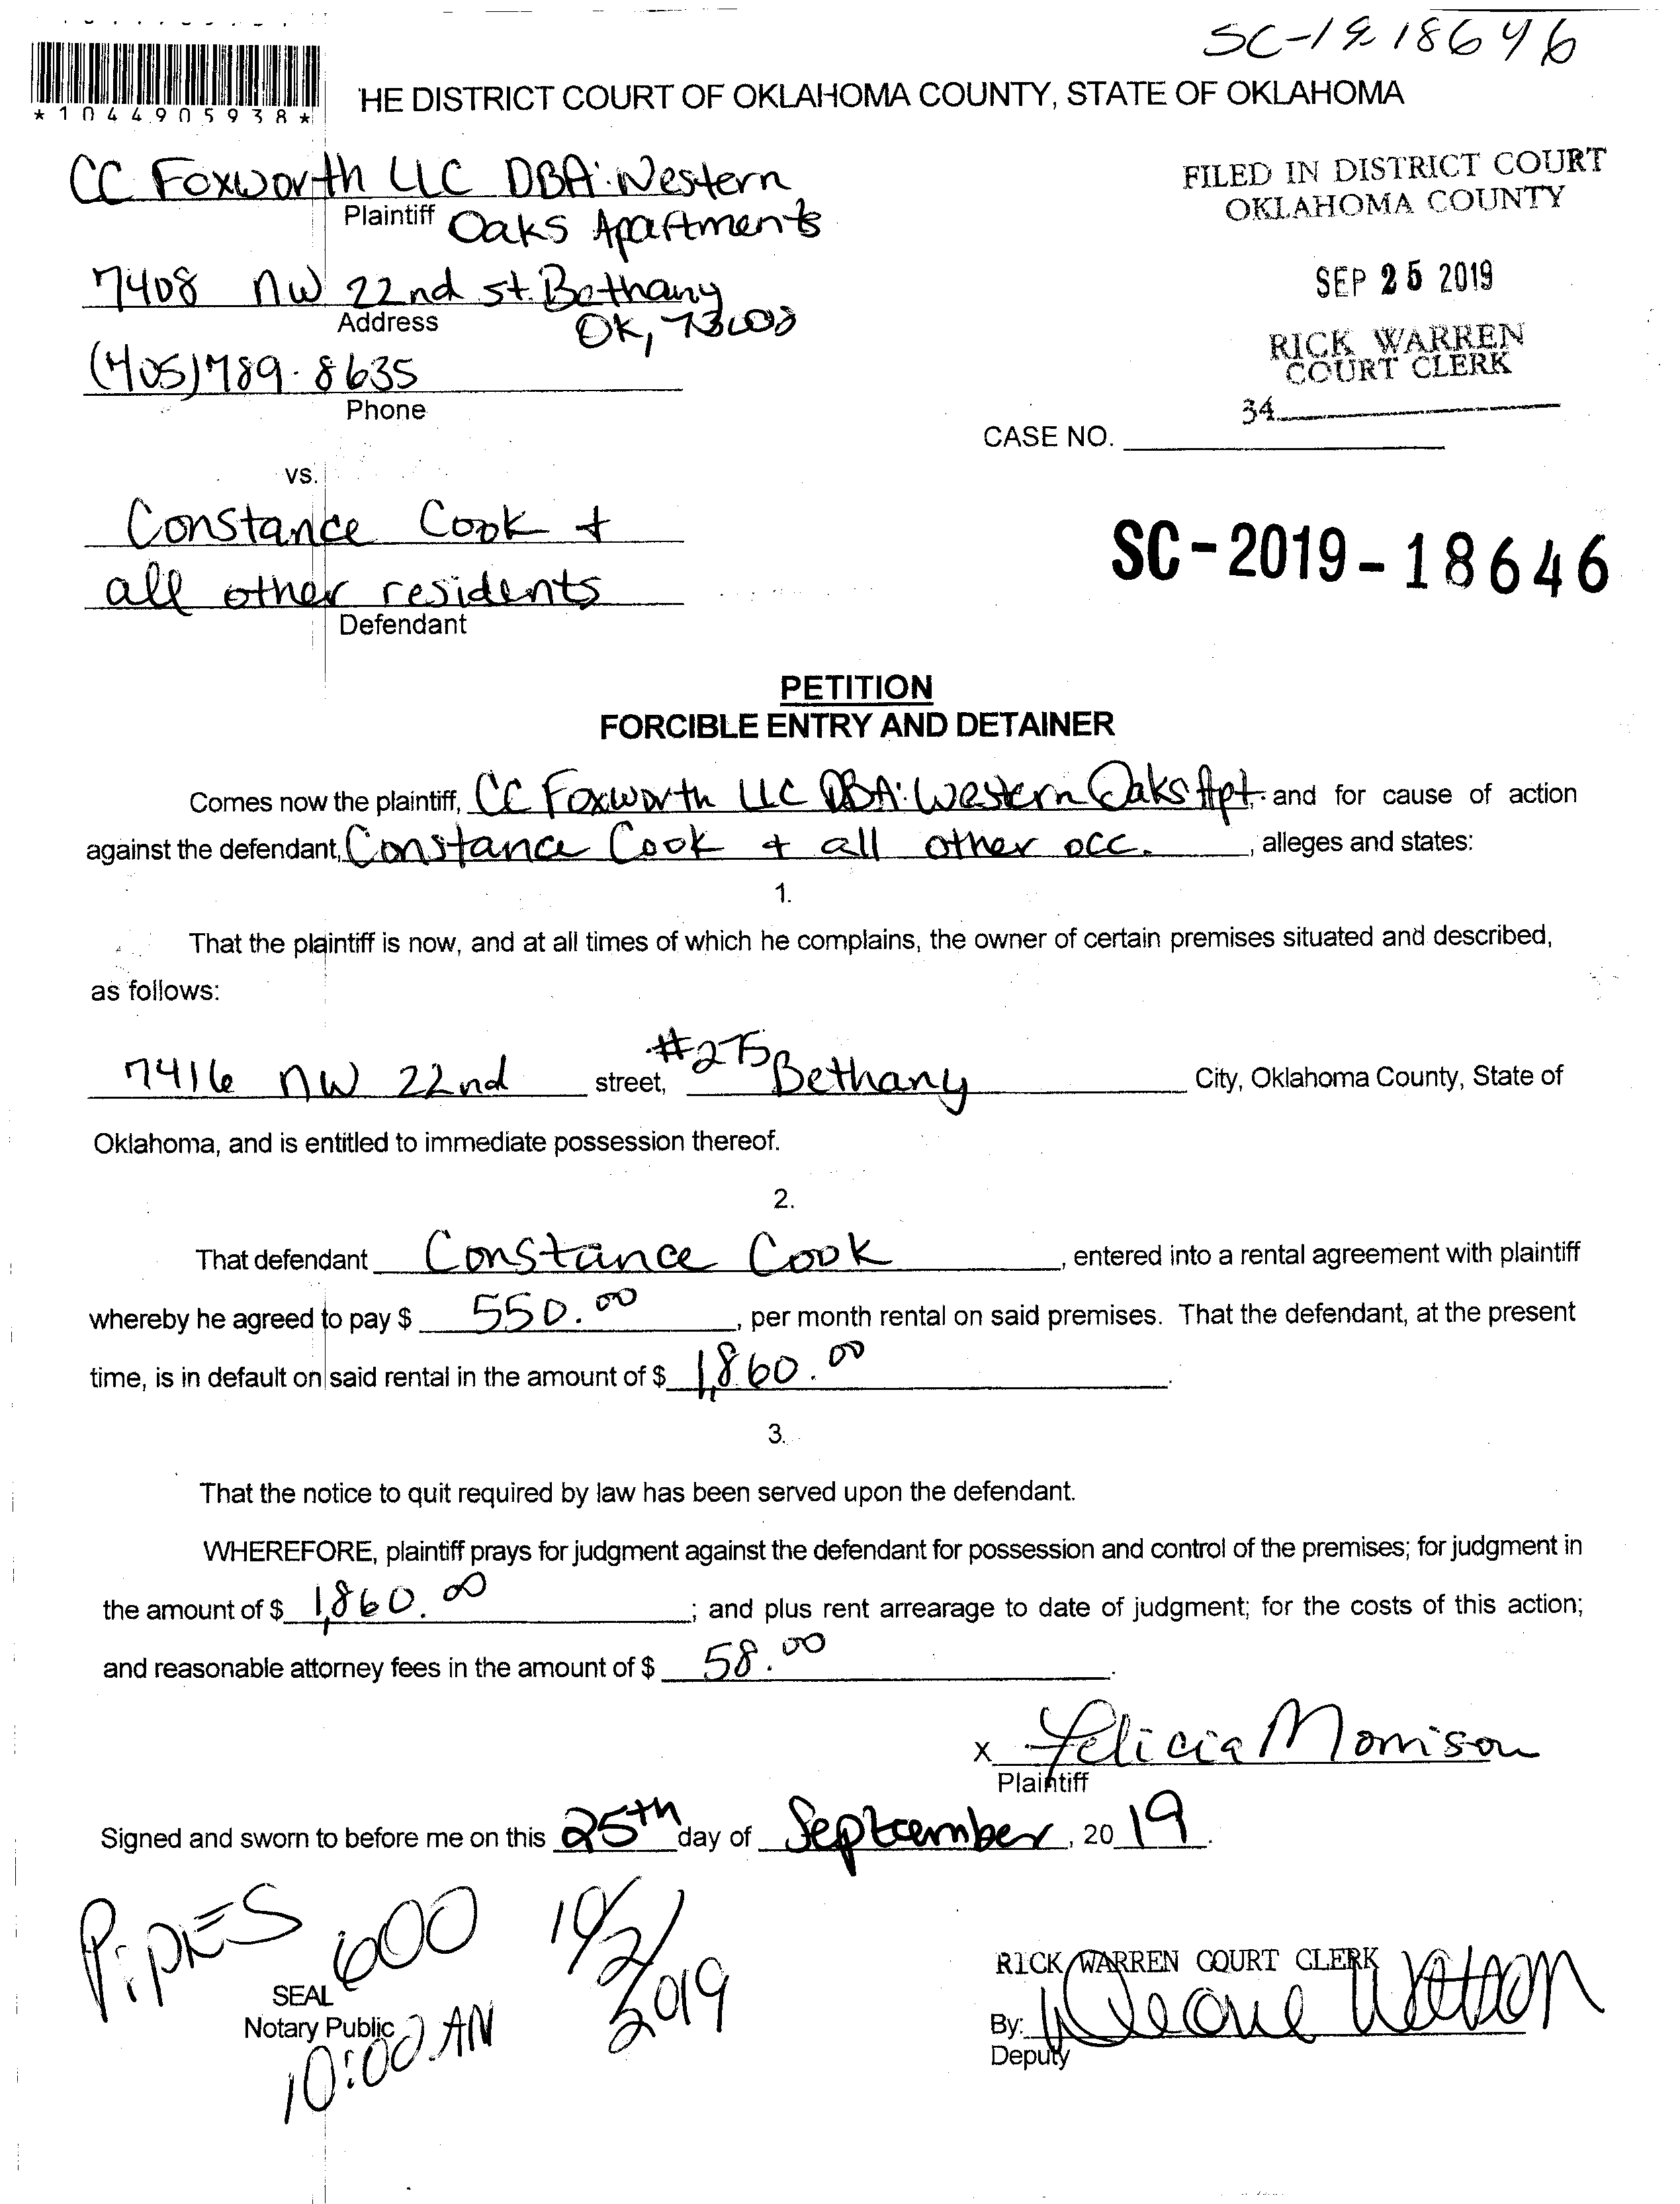 SC-19 18646
*1044905938*
HE DISTRICT COURT OF OKLAHOMA COUNTY, STATE OF OKLAHOMA
CC Foxworth LLC DBA: Western
Plaintiff Oaks Apartments
FILED IN DISTRICT COURT
OKLAHOMA COUNTY
7408 NW 22nd st. Bethany
Address OK, 73008
SEP 25 2019
RICK WARREN
COURT CLERK
(405)789-8635
Phone
34
CASE NO.
vs.
Constance Cook +
all other residents
Defendant
SC-2019-18646
PETITION
FORCIBLE ENTRY AND DETAINER
Comes now the plaintiff, CC Foxworth LLC DBA: Western Oaks Apt. and for cause of action
against the defendant, Constance Cook + all other occ. , alleges and states:
1.
That the plaintiff is now, and at all times of which he complains, the owner of certain premises situated and described,
as follows:
7416 NW 22nd street, #275 Bethany City, Oklahoma County, State of
Oklahoma, and is entitled to immediate possession thereof.
2.
That defendant Constance Cook , entered into a rental agreement with plaintiff
whereby he agreed to pay $ 550.00 , per month rental on said premises. That the defendant, at the present
time, is in default on said rental in the amount of $ 1,860.00 .
3.
That the notice to quit required by law has been served upon the defendant.
WHEREFORE, plaintiff prays for judgment against the defendant for possession and control of the premises; for judgment in
the amount of $ 1,860.00 ; and plus rent arrearage to date of judgment; for the costs of this action;
and reasonable attorney fees in the amount of $ 58.00 .
x Felicia Morrison
Plaintiff
Signed and sworn to before me on this 25th day of September , 20 19 .
PipKES 600 10/2/2019
SEAL
Notary Public
10:00 AM
RICK WARREN COURT CLERK
By:
Deputy